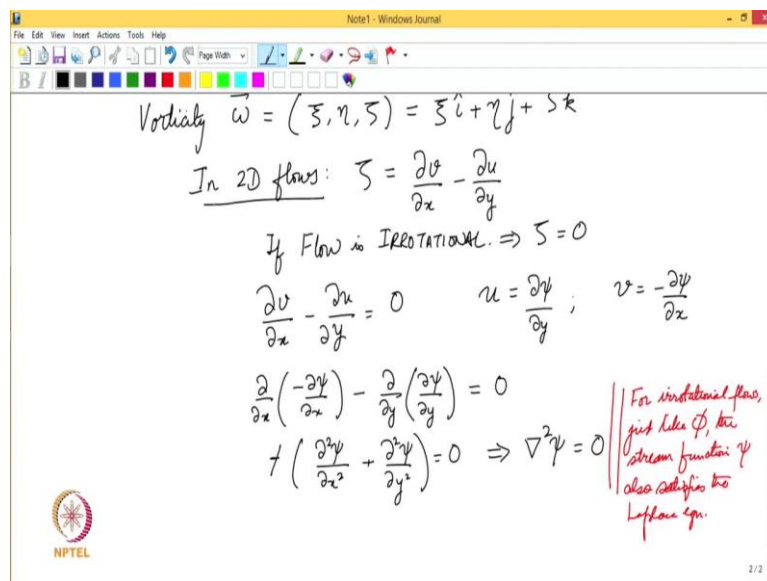 Note1 - Windows Journal
File Edit View Insert Actions Tools Help
Page Width
B I
Vorticity ω⃗ = (ξ, η, ζ) = ξî + ηj + ζk
In 2D flows: ζ = ∂v/∂x - ∂u/∂y
If Flow is IRROTATIONAL. ⇒ ζ = 0
∂v/∂x - ∂u/∂y = 0 u = ∂ψ/∂y ; v = -∂ψ/∂x
∂/∂x (-∂ψ/∂x) - ∂/∂y (∂ψ/∂y) = 0
+ (∂²ψ/∂x² + ∂²ψ/∂y²) = 0 ⇒ ∇²ψ = 0
For irrotational flows,
just like Φ, the
stream function ψ
also satisfies the
Laplace eqn.
NPTEL
2/2